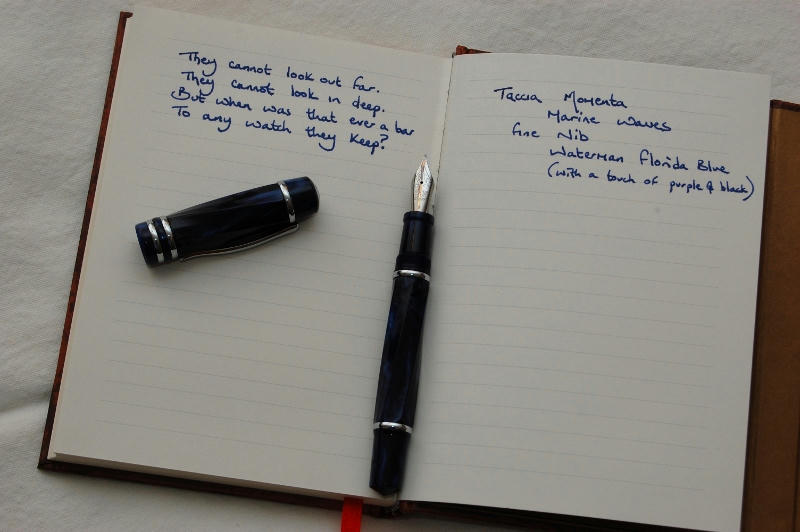 They cannot look out far.
They cannot look in deep.
But when was that ever a bar
To any watch they keep?
Taccia Momenta
Marine Waves
fine Nib
Waterman Florida Blue
(with a touch of purple & black)